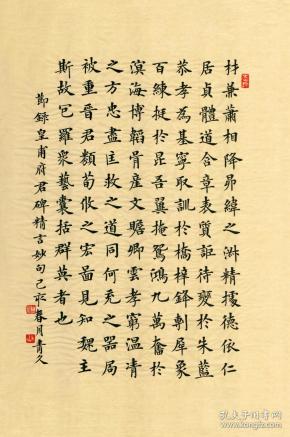 材兼蕭相降昴緯之淋精據德依仁
居貞體道含章表質詎待變於朱藍
恭孝為基寧取訓於橋梓鋒剸犀象
百練挺於昆吾翼掩鴛鴻九萬奮於
溟海博韜骨產文贍卿雲孝窮溫清
之方忠盡匡救之道同何充之器局
被重晉君類荀攸之宏圖見知魏主
斯故包羅眾藝囊括群英者也
節錄皇甫府君碑精言妙句己
春月青久
孔夫子旧书网